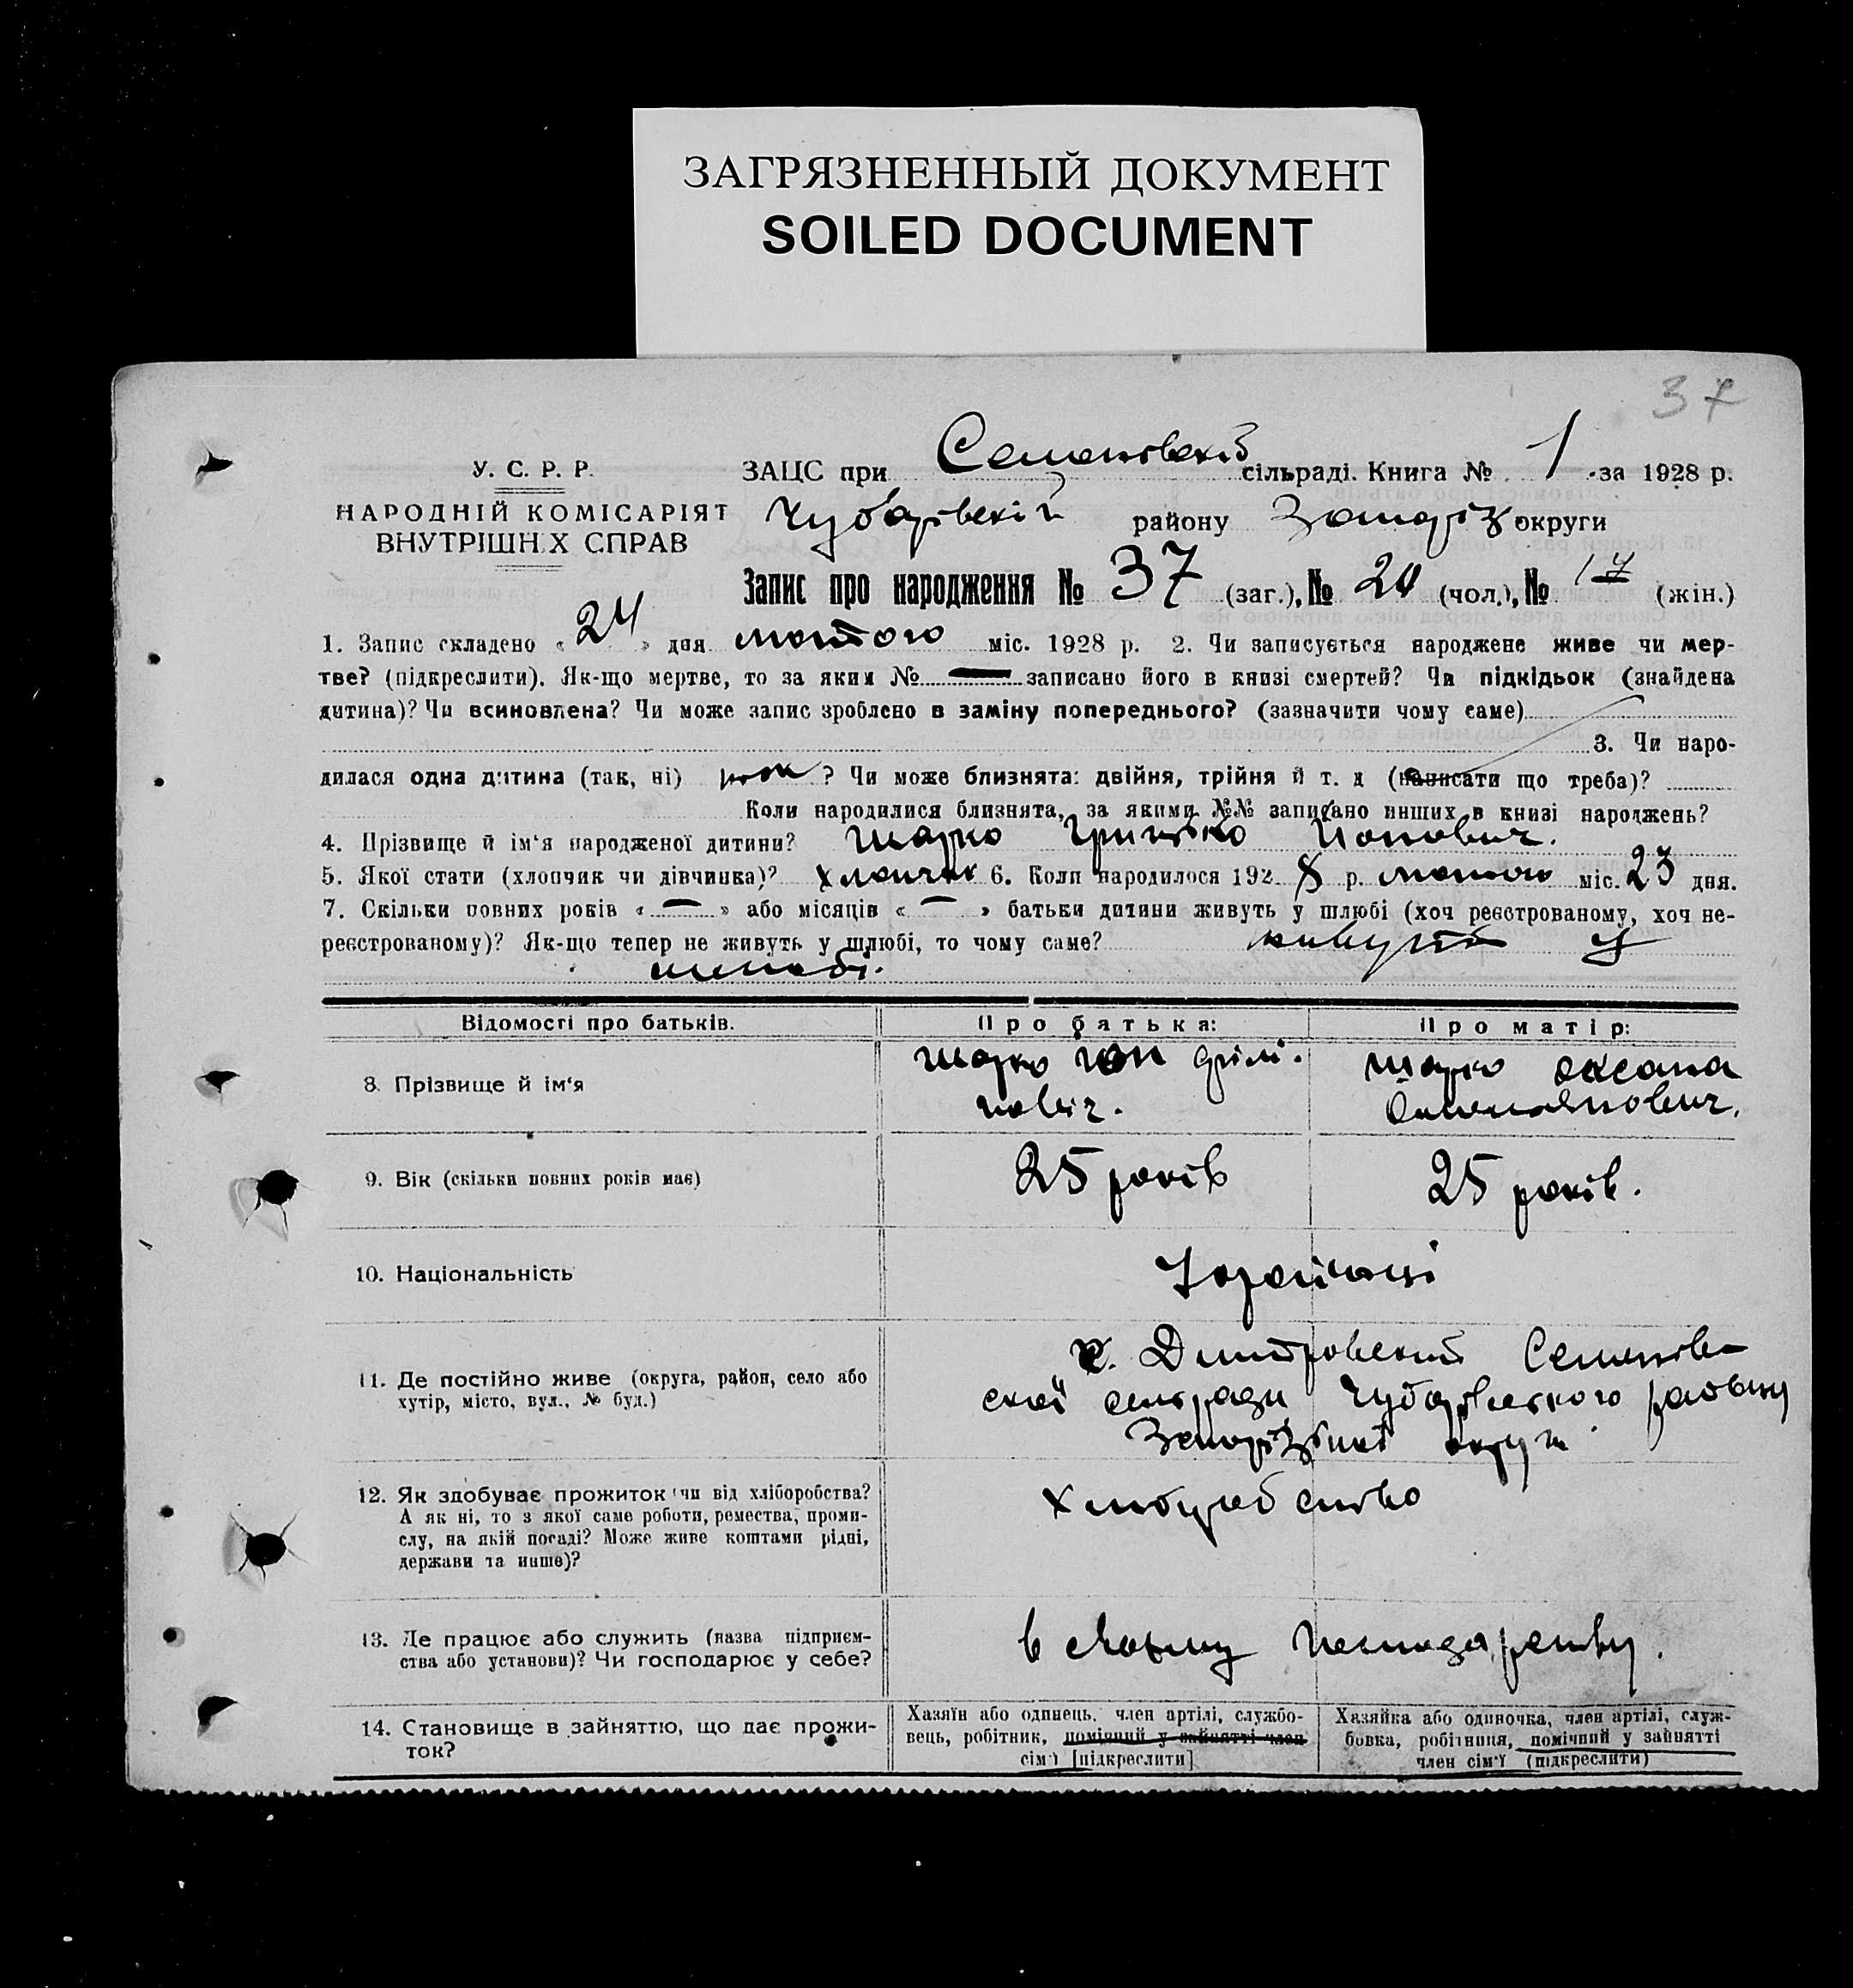 ЗАГРЯЗНЕННЫЙ ДОКУМЕНТ
SOILED DOCUMENT
37
У. С. Р. Р.
НАРОДНІЙ КОМІСАРІЯТ
ВНУТРІШН Х СПРАВ
ЗАЦС при Семеновскій сільраді. Книга № 1 за 1928 р.
Чубарівскій району округи
Запис про народження № 37 (заг.), № 20 (чол.), № 17 (жін.)
1. Запис складено « 24 » дня лютого міс. 1928 р. 2. Чи записується народжене живе чи мер-
тве? (підкреслити). Як-що мертве, то за яким № записано його в книзі смертей? Чи підкідьок (знайдена
дитина)? Чи всиновлена? Чи може запис зроблено в заміну попереднього? (зазначити чому саме)
3. Чи наро-
дилася одна дитина (так, ні) ? Чи може близнята: двійня, трійня й т. д (написати що треба)?
Коли народилися близнята, за якими №№ записано инших в книзі народжень?
4. Прізвище й ім'я народженої дитини? Шарко Грицько
5. Якої стати (хлопчик чи дівчинка)? хлопчик 6. Коли народилося 192 8 р. лютого міс. 23 дня.
7. Скільки повних років « — » або місяців « — » батьки дитини живуть у шлюбі (хоч реєстрованому, хоч не-
реєстрованому)? Як-що тепер не живуть у шлюбі, то чому саме? живуть у
шлюбі.
Відомості про батьків.
Про батька:
Про матір:
8. Прізвище й ім'я
Шарко
Шарко Оксана
9. Вік (скільки повних років має)
25 років
25 років.
10. Національність
Україньці
11. Де постійно живе (округа, район, село або
хутір, місто, вул., № буд.)
Дмитровский Семенів-
скої сельради Чубарівского району
округи
12. Як здобуває прожиток (чи від хліборобства?
А як ні, то з якої саме роботи, ремества, проми-
слу, на якій посаді? Може живе коштами рідні,
держави та инше)?
13. Де працює або служить (назва підприєм-
ства або установи)? Чи господарює у себе?
в своему господарству.
14. Становище в зайняттю, що дає прожи-
ток?
Хазяїн або одинець, член артілі, службо-
вець, робітник, помічний у зайнятті член
сім'ї [підкреслити]
Хазяйка або одиночка, член артілі, служ-
бовка, робітниця, помічний у зайнятті
член сім'ї (підкреслити)